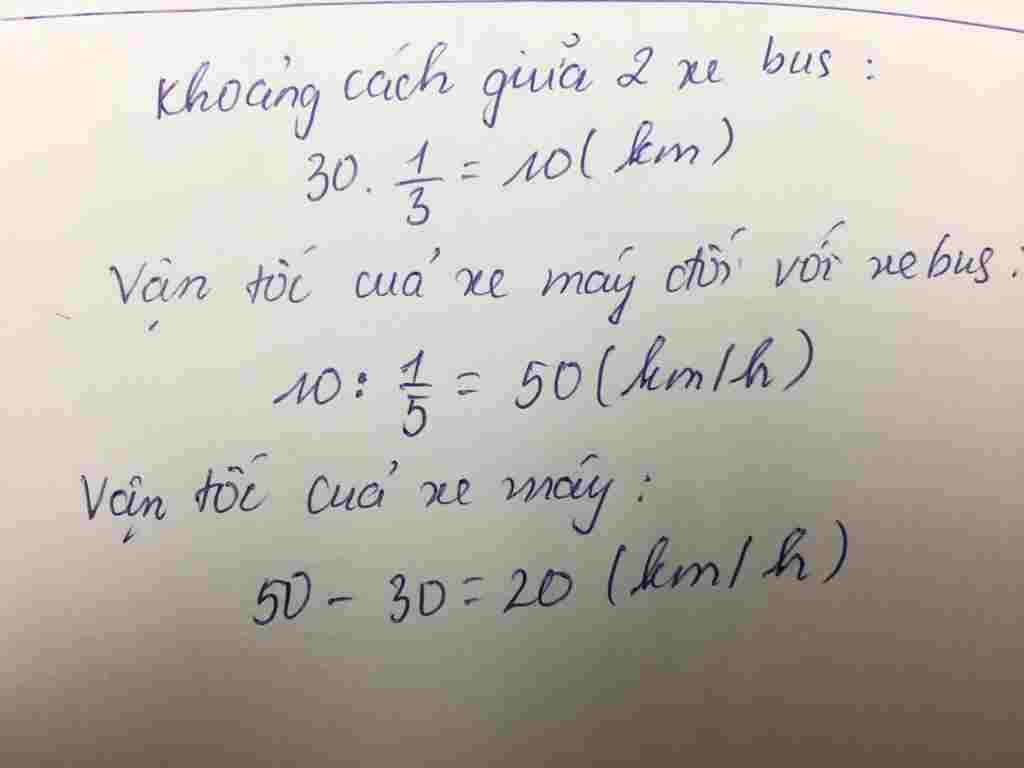 Khoảng cách giữa 2 xe bus :
30 . 1/3 = 10 ( km )
Vận tốc của xe máy đối với xe bus :
10 : 1/5 = 50 ( km/h )
Vận tốc của xe máy :
50 - 30 = 20 ( km/h )